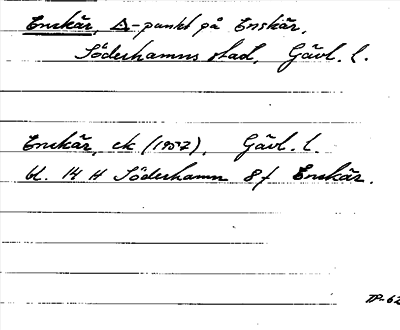 Enskär, △-punkt på Enskär,
Söderhamns stad, Gävl. l.
Enskär, ek (1957), Gävl. l.
bl. 14 H Söderhamn 8 f Enskär.
TP-62